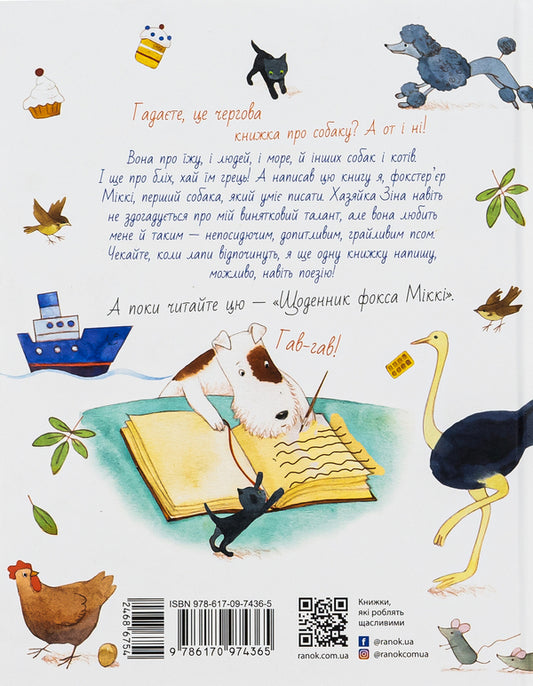 Гадаєте, це чергова
книжка про собаку? А от і ні!
Вона про їжу, і людей, і море, й інших собак і котів.
І ще про бліх, хай їм грець! А написав цю книгу я, фокстер'єр
Міккі, перший собака, який уміє писати. Хазяйка Зіна навіть
не здогадується про мій винятковий талант, але вона любить
мене й таким — непосидючим, допитливим, грайливим псом.
Чекайте, коли лапи відпочинуть, я ще одну книжку напишу,
можливо, навіть поезію!
А поки читайте цю — «Щоденник фокса Міккі».
Гав-гав!
ISBN 978-617-09-7436-5
9 786170 974365
2468 6754
ranok.com.ua
Книжки,
які роблять
щасливими
@ranok.ua
@ranokcomua